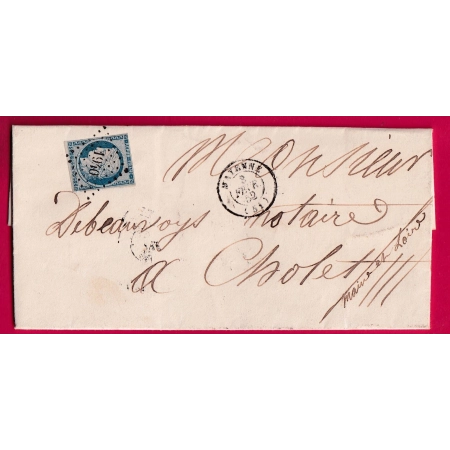 1940
MAYENNE
(51)
Monsieur
Debeauvoys notaire
a Cholet
maine et Loire